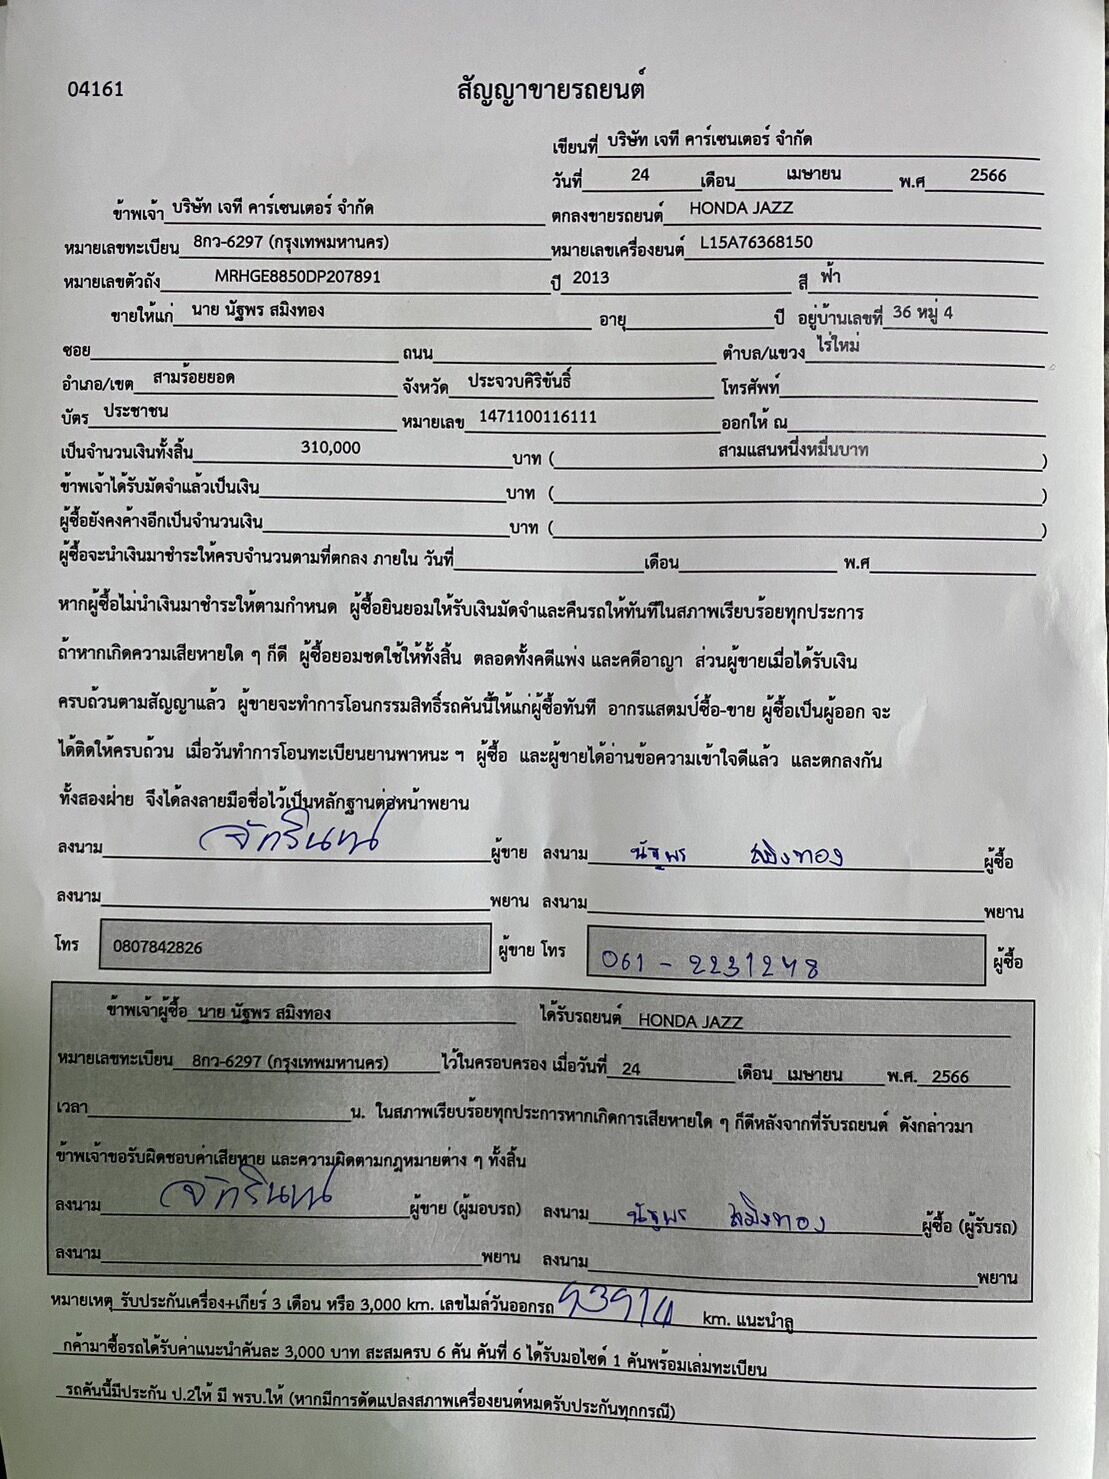 04161
สัญญาขายรถยนต์
เขียนที่ บริษัท เจที คาร์เซนเตอร์ จำกัด
วันที่ 24 เดือน เมษายน พ.ศ 2566
ข้าพเจ้า บริษัท เจที คาร์เซนเตอร์ จำกัด ตกลงขายรถยนต์ HONDA JAZZ
หมายเลขทะเบียน 8กว-6297 (กรุงเทพมหานคร) หมายเลขเครื่องยนต์ L15A76368150
หมายเลขตัวถัง MRHGE8850DP207891 ปี 2013 สี ฟ้า
ขายให้แก่ นาย นัฐพร สมิงทอง อายุ ปี อยู่บ้านเลขที่ 36 หมู่ 4
ซอย ถนน ตำบล/แขวง ไร่ใหม่
อำเภอ/เขต สามร้อยยอด จังหวัด ประจวบคิริขันธิ์ โทรศัพท์
บัตร ประชาชน หมายเลข 1471100116111 ออกให้ ณ
เป็นจำนวนเงินทั้งสิ้น 310,000 บาท ( สามแสนหนึ่งหมื่นบาท )
ข้าพเจ้าได้รับมัดจำแล้วเป็นเงิน บาท ( )
ผู้ซื้อยังคงค้างอีกเป็นจำนวนเงิน บาท ( )
ผู้ซื้อจะนำเงินมาชำระให้ครบจำนวนตามที่ตกลง ภายใน วันที่ เดือน พ.ศ
หากผู้ซื้อไม่นำเงินมาชำระให้ตามกำหนด ผู้ซื้อยินยอมให้รับเงินมัดจำและคืนรถให้ทันทีในสภาพเรียบร้อยทุกประการ
ถ้าหากเกิดความเสียหายใด ๆ ก็ดี ผู้ซื้อยอมชดใช้ให้ทั้งสิ้น ตลอดทั้งคดีแพ่ง และคดีอาญา ส่วนผู้ขายเมื่อได้รับเงิน
ครบถ้วนตามสัญญาแล้ว ผู้ขายจะทำการโอนกรรมสิทธิ์รถคันนี้ให้แก่ผู้ซื้อทันที อากรแสตมป์ซื้อ-ขาย ผู้ซื้อเป็นผู้ออก จะ
ได้ติดให้ครบถ้วน เมื่อวันทำการโอนทะเบียนยานพาหนะ ฯ ผู้ซื้อ และผู้ขายได้อ่านข้อความเข้าใจดีแล้ว และตกลงกัน
ทั้งสองฝ่าย จึงได้ลงลายมือชื่อไว้เป็นหลักฐานต่อหน้าพยาน
ลงนาม ผู้ขาย ลงนาม นัฐพร สมิงทอง ผู้ซื้อ
ลงนาม พยาน ลงนาม พยาน
โทร 0807842826 ผู้ขาย โทร 061 - 2231248 ผู้ซื้อ
ข้าพเจ้าผู้ซื้อ นาย นัฐพร สมิงทอง ได้รับรถยนต์ HONDA JAZZ
หมายเลขทะเบียน 8กว-6297 (กรุงเทพมหานคร) ไว้ในครอบครอง เมื่อวันที่ 24 เดือน เมษายน พ.ศ. 2566
เวลา น. ในสภาพเรียบร้อยทุกประการหากเกิดการเสียหายใด ๆ ก็ดีหลังจากที่รับรถยนต์ ดังกล่าวมา
ข้าพเจ้าขอรับผิดชอบค่าเสียหาย และความผิดตามกฎหมายต่าง ๆ ทั้งสิ้น
ลงนาม ผู้ขาย (ผู้มอบรถ) ลงนาม นัฐพร สมิงทอง ผู้ซื้อ (ผู้รับรถ)
ลงนาม พยาน ลงนาม พยาน
หมายเหตุ รับประกันเครื่อง+เกียร์ 3 เดือน หรือ 3,000 km. เลขไมล์วันออกรถ km. แนะนำลู
กค้ามาซื้อรถได้รับค่าแนะนำคันละ 3,000 บาท สะสมครบ 6 คัน คันที่ 6 ได้รับมอไซด์ 1 คันพร้อมเล่มทะเบียน
รถคันนี้มีประกัน ป.2ให้ มี พรบ.ให้ (หากมีการดัดแปลงสภาพเครื่องยนต์หมดรับประกันทุกกรณี)